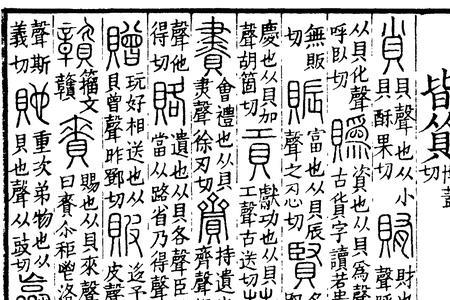 皆从貝
切
貝聲也从小
貝酥果切
賄
財也
聲呼
从貝化聲
呼臥切
䞈
資也从貝爲聲
古貨字讀若
無販
切
賑
富也从貝辰
聲之忍切
賢
慶也从貝加
聲胡箇切
貢
獻功也从貝
工聲古送切
賮
會禮也从貝
㶳聲徐刃切
齎
持遺也
齊聲
聲他
得切
賂
遺也从貝各聲臣
當从路省乃得聲
贈
玩好相送也从
貝曾聲昨鄧切
貱
迻予
皮聲
籀文
贛
賚
賜也从貝來聲
曰賚尒秬鬯洛
聲斯
義切
貤
重次弟物也从
貝也聲以豉切